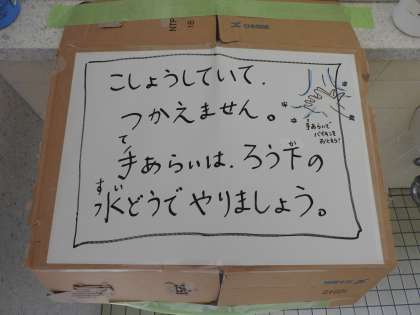 こしょうしていて、
つかえません。
手あらいは、ろう下の
水どうでやりましょう。
て
か
すい
手あらいで
バイキンを
おとそう!